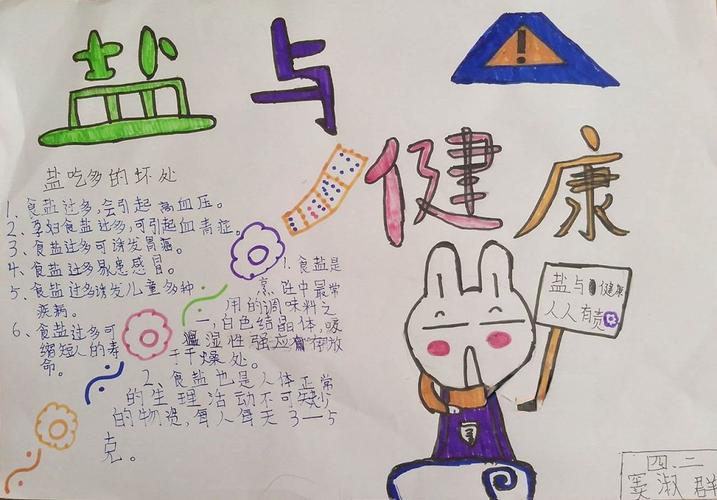 盐与
健康
盐吃多的坏处
1、食盐过多,会引起高血压。
2、孕妇食盐过多,可引起血毒症。
3、食盐过多可诱发胃癌。
4、食盐过多易患感冒。
5、食盐过多诱发儿童多种
疾病。
6、食盐过多可
缩短人的寿
命。
1、食盐是
烹饪中最常
用的调味料之
一,白色结晶体,吸
湿性强应存放
于干燥处。
2、食盐也是人体正常
的生理活动不可缺少
的物资,每人每天3—5
克。
盐与健康
人人有责
四、二
窦淑群